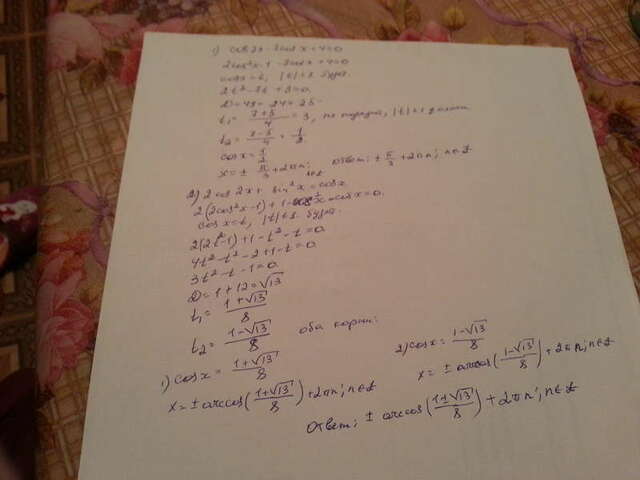 1) cos2x - 7cosx + 4 = 0
2cos²x - 1 - 7cosx + 4 = 0
cosx = t, |t| ≤ 1
2t² - 7t + 3 = 0
D = 49 - 24 = 25
t₁ = (7+5)/4 = 3, |t| ≤ 1
t₂ = (7-5)/4 = 1/2
cosx = 1/2
x = ± π/3 + 2πn; n∈Z ответ: ± π/3 + 2πn; n∈Z
2) 2cos2x + sin²x = cosx
2(2cos²x - 1) + 1 - cos²x - cosx = 0
cosx = t, |t| ≤ 1
2(2t² - 1) + 1 - t² - t = 0
4t² - t² - 2 + 1 - t = 0
3t² - t - 1 = 0
D = 1 + 12 = √13
t₁ = (1+√13)/8
t₂ = (1-√13)/8 оба корни:
1) cosx = (1+√13)/8
x = ± arccos((1+√13)/8) + 2πn; n∈Z
2) cosx = (1-√13)/8
x = ± arccos((1-√13)/8) + 2πn; n∈Z
Ответ: ± arccos((1±√13)/8) + 2πn; n∈Z